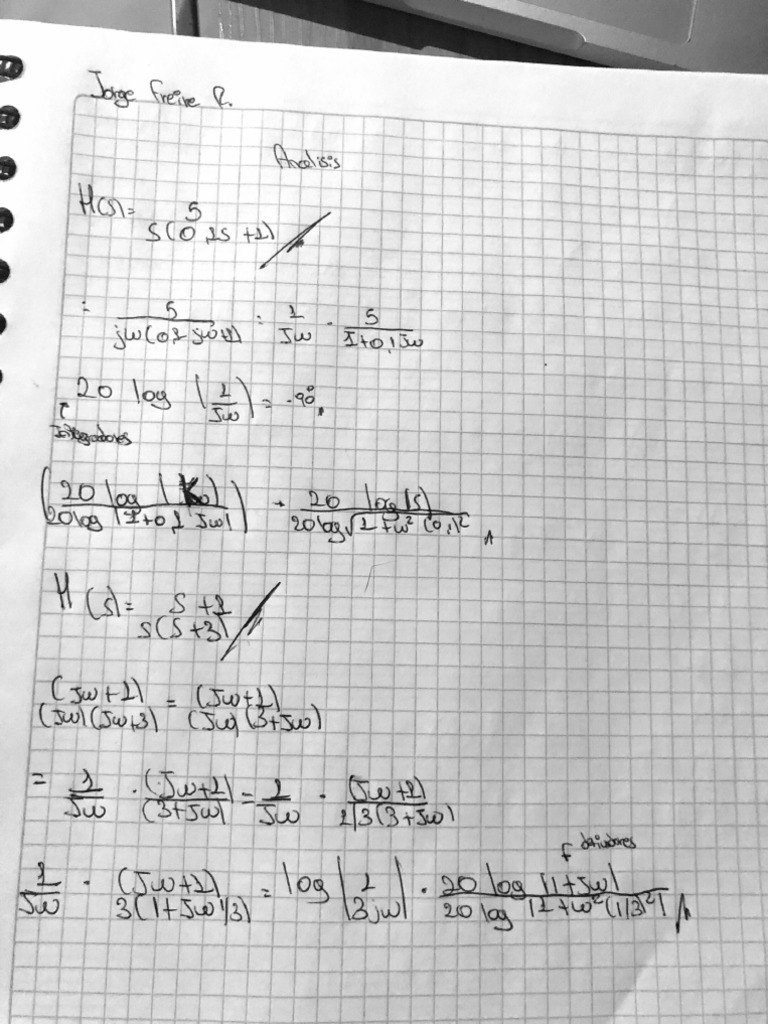 Jorge Freire R.
Analisis
H(s)= 5
s(0,1s +1)
= 5 / jw(0,1 jw+1) = 1 / Jw · 5 / 1+0,1Jw
20 log |1 / Jw| = -90°
Integradores
(20 log |K0| / 20log |1+0,1 Jw|) = 20 log |5| / 20log √1+w² (0,1)²
H(s)= s+1
s(s+3)
(Jw+1) / (Jw)(Jw+3) = (Jw+1) / (Jw)(3+Jw)
= 1 / Jw · (Jw+1) / (3+Jw) = 1 / Jw · (Jw+1) / 1/3(3+Jw)
derivadores
1 / Jw · (Jw+1) / 3(1+Jw 1/3) = log |1 / 3jw| · 20 log |1+Jw| / 20 log |1+w²(1/3)²|